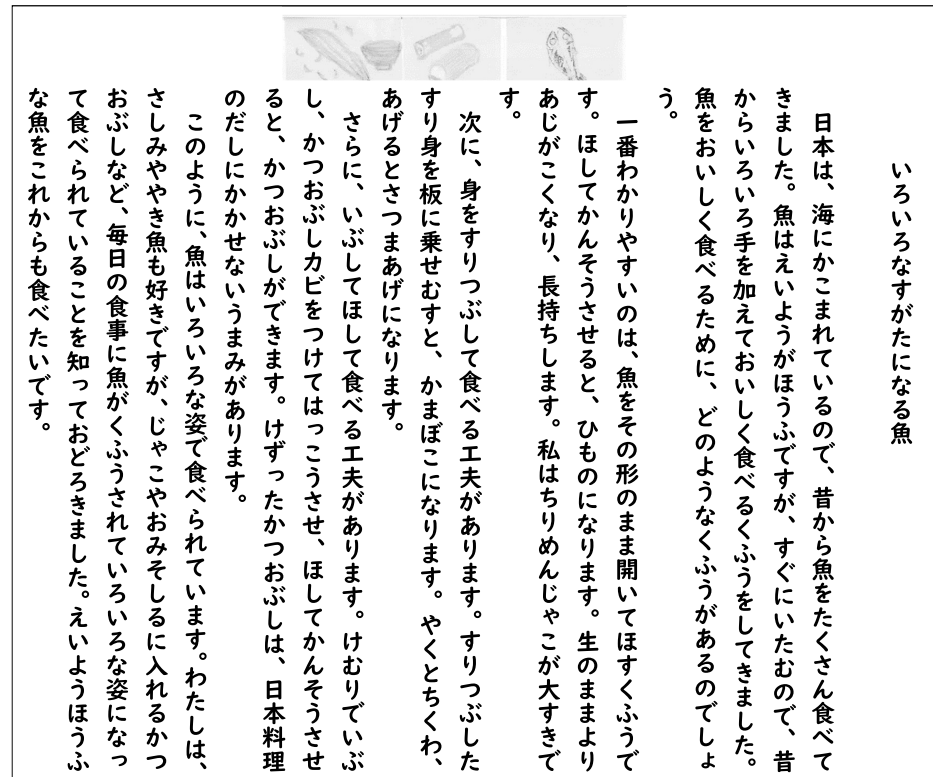 いろいろなすがたになる魚
日本は、海にかこまれているので、昔から魚をたくさん食べて
きました。魚はえいようがほうふですが、すぐにいたむので、昔
からいろいろ手を加えておいしく食べるくふうをしてきました。
魚をおいしく食べるために、どのようなくふうがあるのでしょ
う。
一番わかりやすいのは、魚をその形のまま開いてほすくふうで
す。ほしてかんそうさせると、ひものになります。生のままより
あじがこくなり、長持ちします。私はちりめんじゃこが大すきで
す。
次に、身をすりつぶして食べる工夫があります。すりつぶした
すり身を板に乗せむすと、かまぼこになります。やくとちくわ、
あげるとさつまあげになります。
さらに、いぶしてほして食べる工夫があります。けむりでいぶ
し、かつおぶしカビをつけてはっこうさせ、ほしてかんそうさせ
ると、かつおぶしができます。けずったかつおぶしは、日本料理
のだしにかかせないうまみがあります。
このように、魚はいろいろな姿で食べられています。わたしは、
さしみややき魚も好きですが、じゃこやおみそしるに入れるかつ
おぶしなど、毎日の食事に魚がくふうされていろいろな姿になっ
て食べられていることを知っておどろきました。えいようほうふ
な魚をこれからも食べたいです。